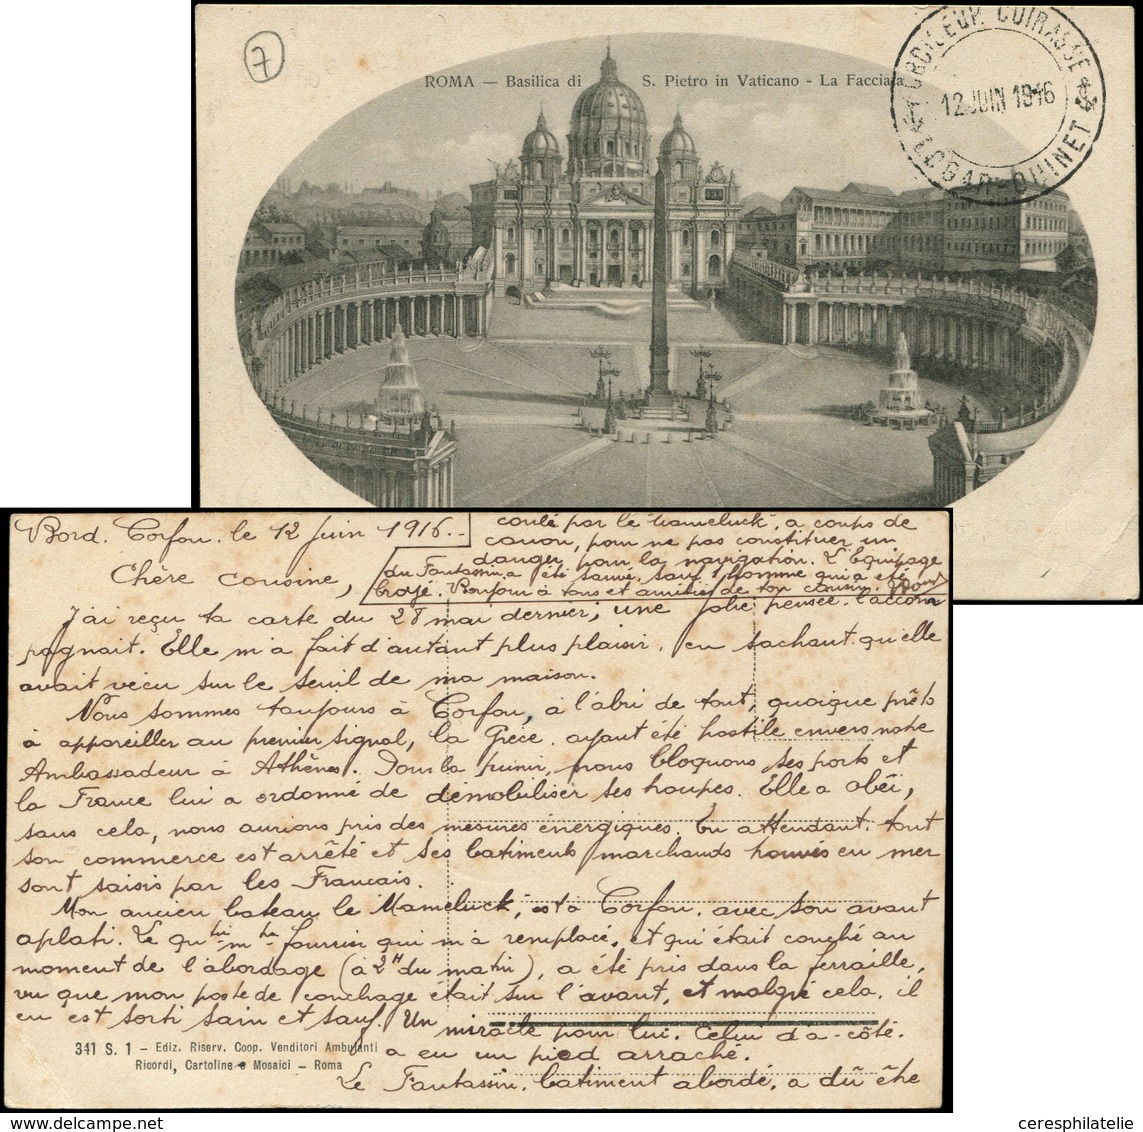 7
ROMA — Basilica di S. Pietro in Vaticano - La Facciata
TORPILLEUR CUIRASSÉ
12 JUIN 1916
EDGAR-QUINET
Bord. Corfou. le 12 juin 1916.
Chère cousine,
J'ai reçu ta carte du 28 mai dernier; une jolie pensée l'accom
pagnait. Elle m'a fait d'autant plus plaisir, en sachant qu'elle
avait vécu sur le seuil de ma maison.
Nous sommes toujours à Corfou, à l'abri de tout, quoique prêts
à appareiller au premier signal, la Grèce ayant été hostile envers notre
Ambassadeur à Athènes. Pour la punir, nous bloquons ses ports et
la France lui a ordonné de démobiliser ses troupes. Elle a obéi,
sans cela, nous aurions pris des mesures énergiques. En attendant tout
son commerce est arrêté et ses batiments marchands trouvés en mer
sont saisis par les Francais.
Mon ancien bateau le Mameluck, est à Corfou, avec son avant
aplati. Le qu m fourrier qui m'a remplacé, et qui était couché au
moment de l'abordage (à 2H du matin), a été pris dans la ferraille,
vu que mon poste de couchage était sur l'avant, et malgré cela, il
en est sorti sain et sauf. Un miracle pour lui. Celui d'à-côté.
a eu un pied arraché.
Le Fantassin, batiment abordé, a dû être
coulé par le Mameluck, à coups de
canon, pour ne pas constituer un
danger pour la navigation. L'Equipage
du Fantassin a été sauvé, sauf 1 homme qui a été
broyé. Bonjour à tous et amitiés de ton cousin.
341 S. 1 – Ediz. Riserv. Coop. Venditori Ambulanti
Ricordi, Cartoline e Mosaici – Roma
ceresphilatelie.com